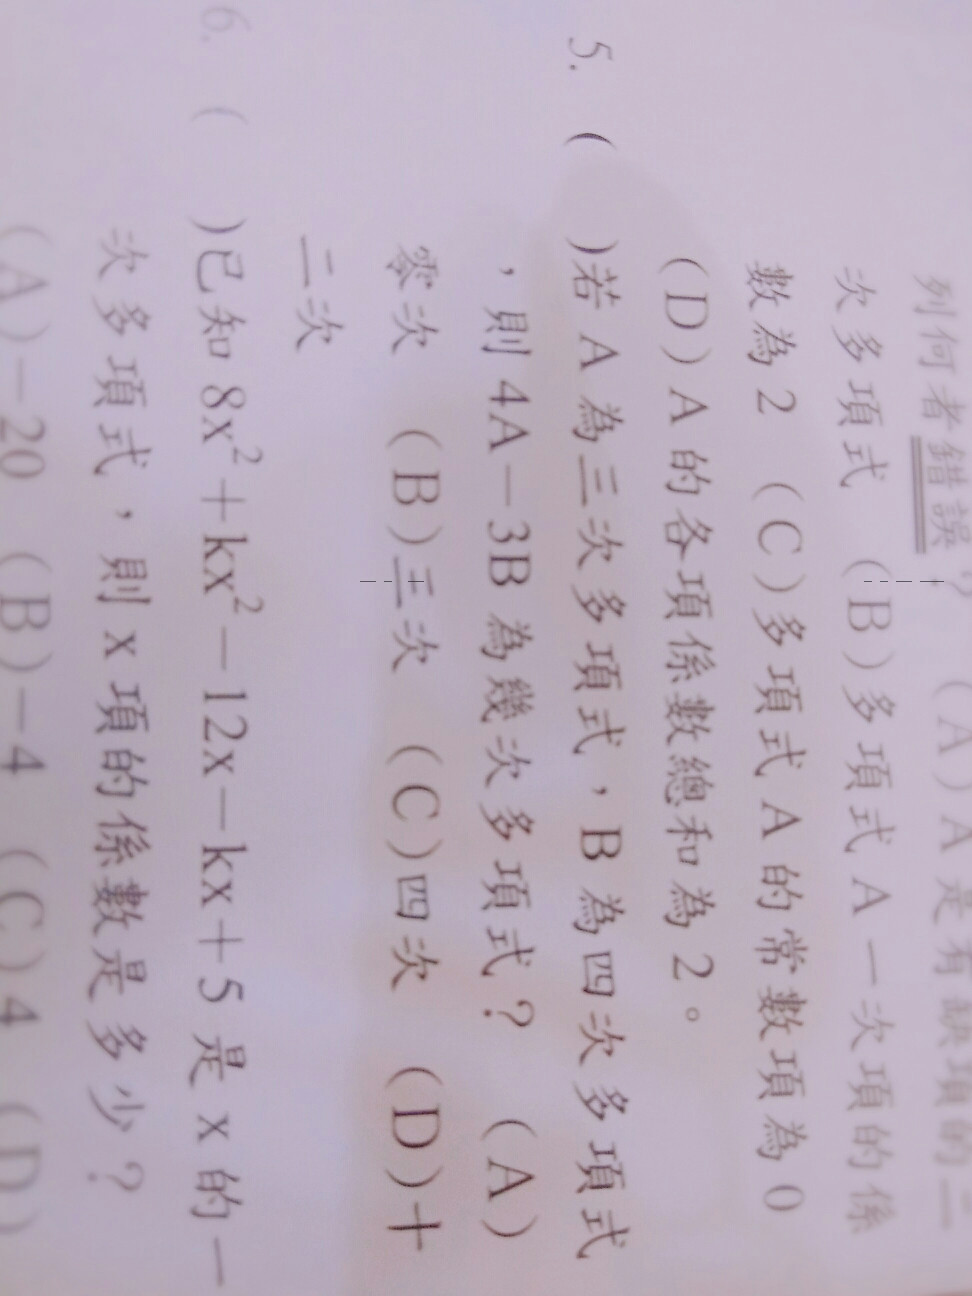 列何者錯誤？ (A) A 是有缺項的二
次多項式 (B)多項式 A 一次項的係
數為 2 (C)多項式 A 的常數項為 0
(D) A 的各項係數總和為 2。
5. ( )若 A 為三次多項式，B 為四次多項式
，則 4A－3B 為幾次多項式？ (A)
零次 (B)三次 (C)四次 (D)十
二次
6. ( )已知 8x²＋kx²－12x－kx＋5 是 x 的一
次多項式，則 x 項的係數是多少？
(A)－20 (B)－4 (C) 4 (D)